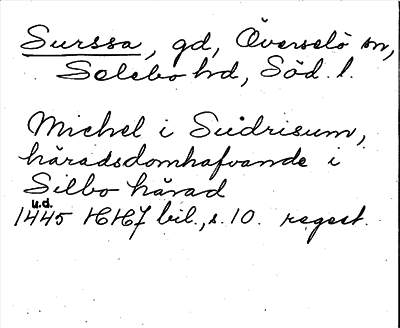 Surssa, gd, Överselö sn,
Selebo hd, Söd. l.
Michel i Sudrisum,
häradsdomhafvande i
Silbo härad
u.d.
1445 HH7 bil., s. 10. regest.